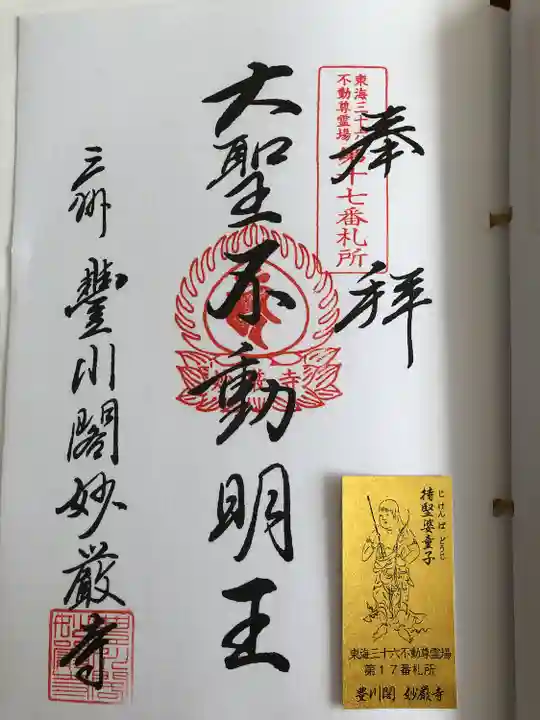 奉拝
東海三十六
不動尊霊場
第十七番札所
大聖不動明王
妙嚴寺
三州 豐川閣妙厳寺
じけんば どうじ
持堅婆童子
東海三十六不動尊霊場
第17番札所
豊川閣 妙厳寺